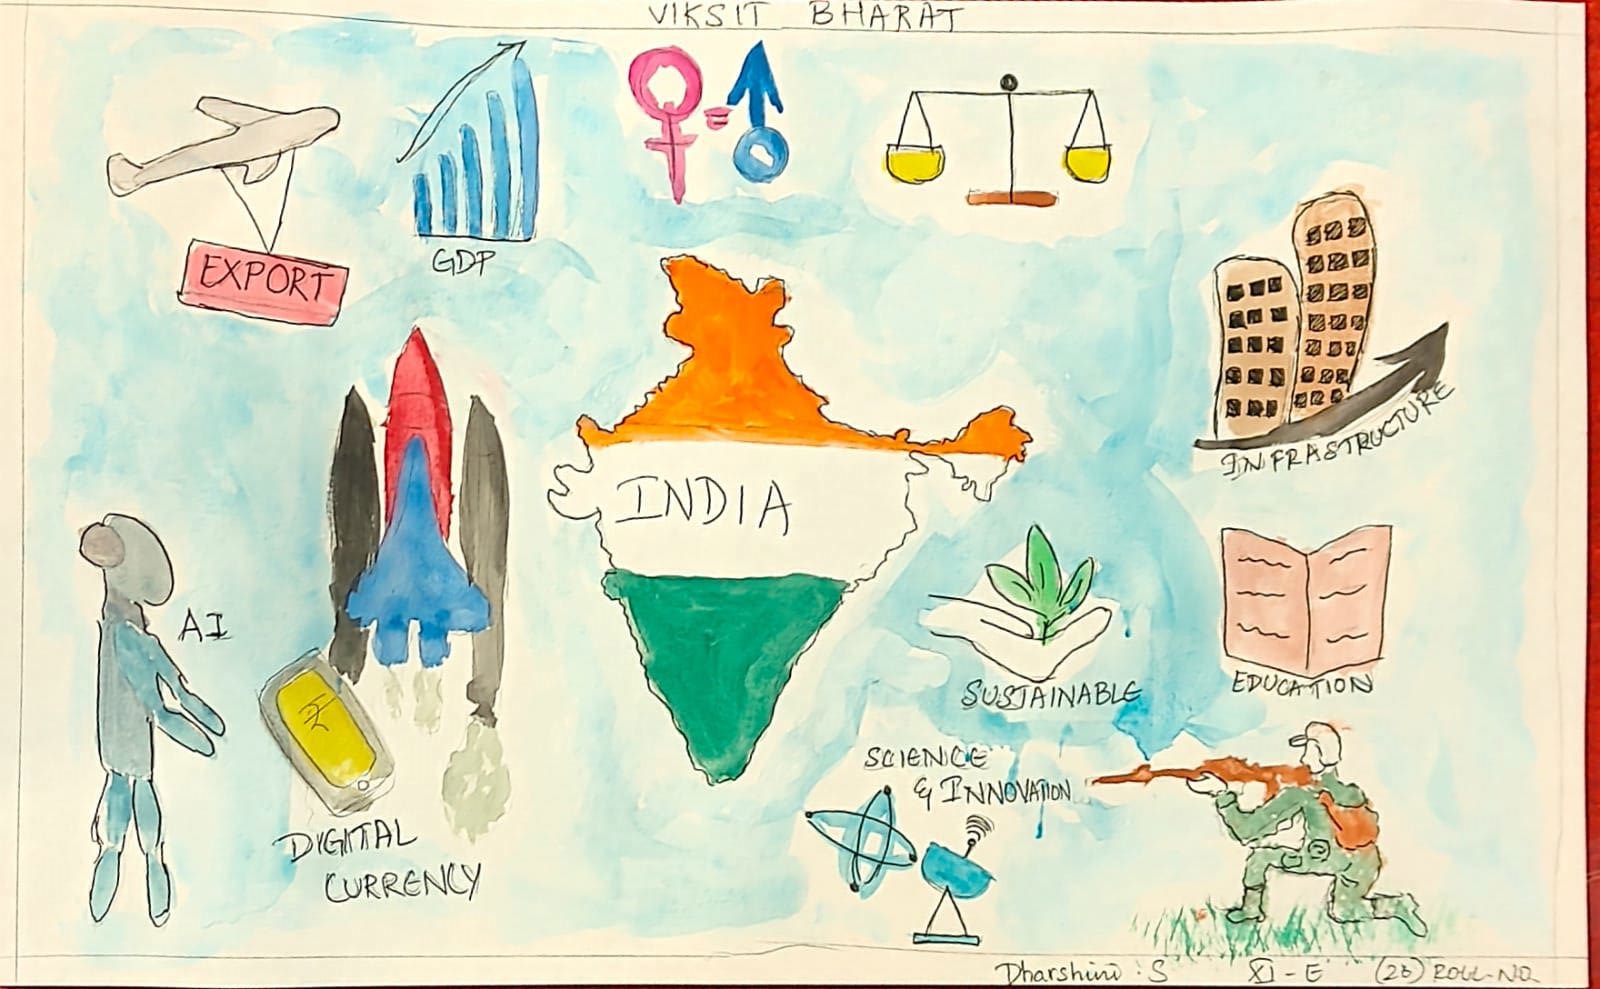 VIKSIT BHARAT
EXPORT
GDP
INFRASTRUCTURE
INDIA
AI
₹
SUSTAINABLE
EDUCATION
SCIENCE
& INNOVATION
DIGITAL
CURRENCY
Dharshini . S XI - E (26) ROLL-NO.